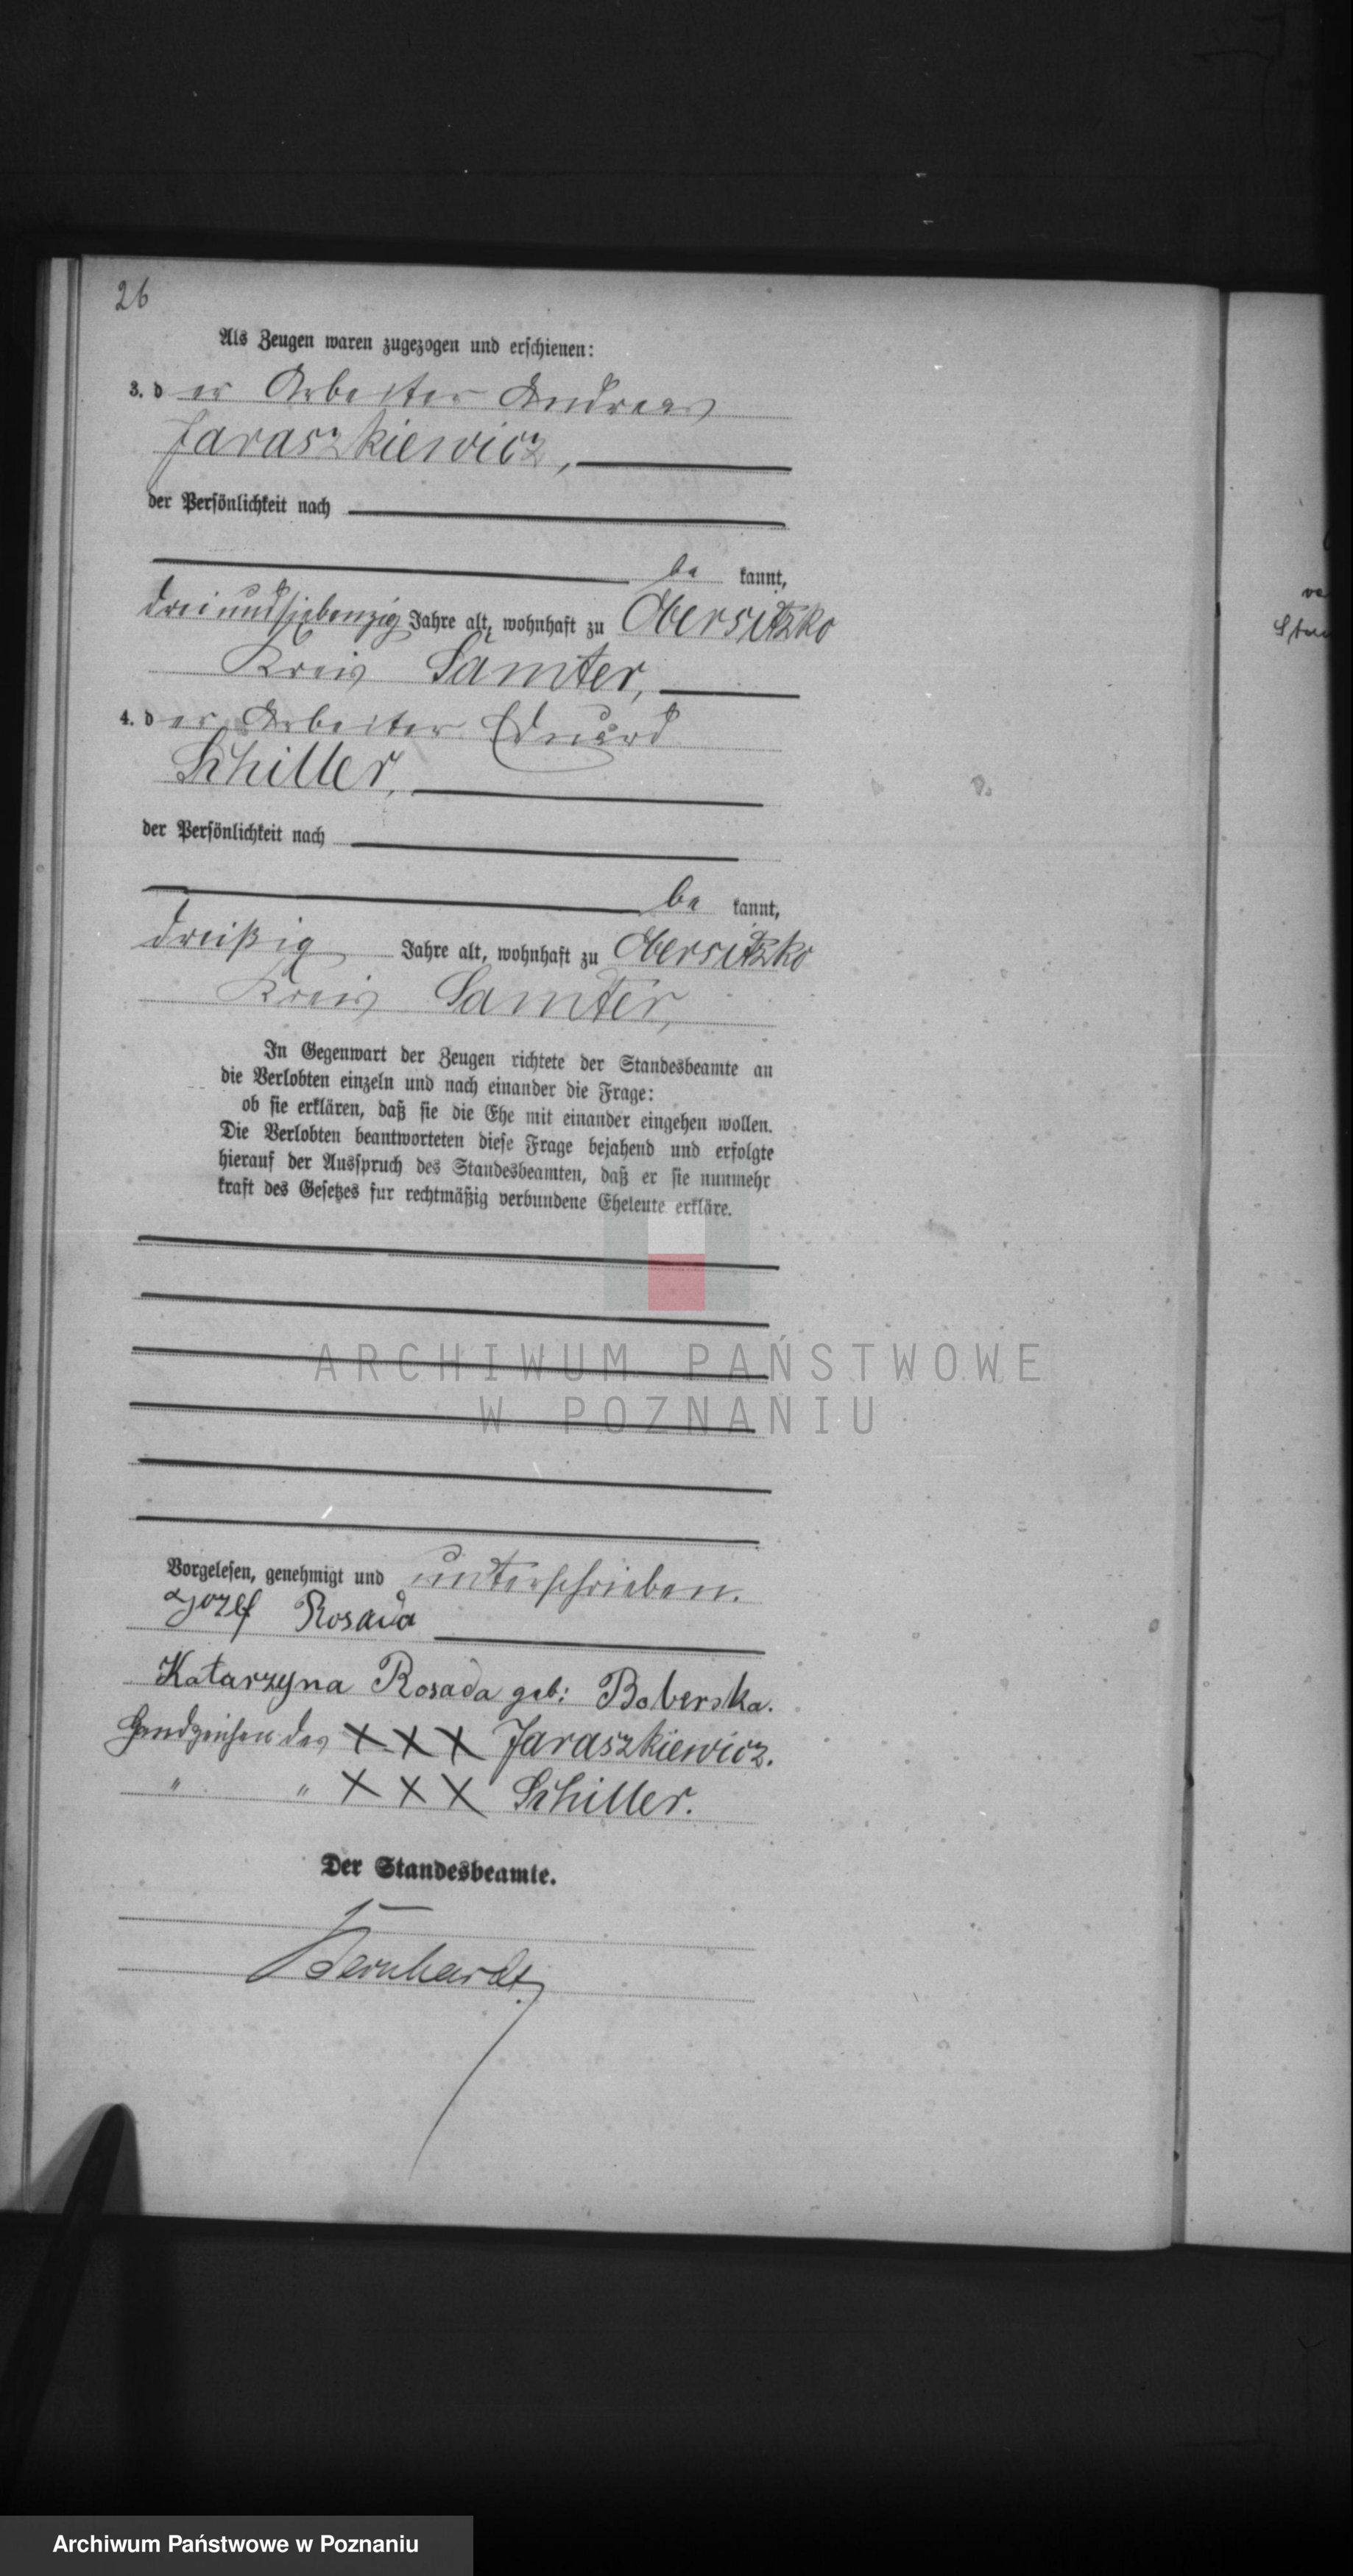 26
Als Zeugen waren zugezogen und erschienen:
3. der Arbeiter Andreas
Jaraszkiewicz,
der Persönlichkeit nach
be kannt,
dreiundsiebenzig Jahre alt, wohnhaft zu Obersitzko
Kreis Samter,
4. der Arbeiter Eduard
Schiller,
der Persönlichkeit nach
be kannt,
dreißig Jahre alt, wohnhaft zu Obersitzko
Kreis Samter,
In Gegenwart der Zeugen richtete der Standesbeamte an
die Verlobten einzeln und nach einander die Frage:
ob sie erklären, daß sie die Ehe mit einander eingehen wollen.
Die Verlobten beantworteten diese Frage bejahend und erfolgte
hierauf der Ausspruch des Standesbeamten, daß er sie nunmehr
kraft des Gesetzes fur rechtmäßig verbundene Eheleute erkläre.
ARCHIWUM PAŃSTWOWE
W POZNANIU
Vorgelesen, genehmigt und unterschrieben.
Jozef Rosada
Katarzyna Rosada geb: Boberska.
Handzeichen des XXX Jaraszkiewicz.
" " XXX Schiller.
Der Standesbeamte.
Bernhardt
Archiwum Państwowe w Poznaniu